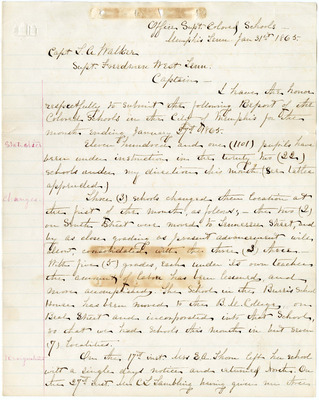 Office Supt Colored Schools
Memphis Tenn Jan 31st 1865
Capt T. A. Walker
Supt. Freedmen West Tenn.
Captain
I have the honor
respectfully to submit the following Report of the
Colored Schools in the City of Memphis for the
month ending January 27th 1865.
Eleven hundred and one (1101) pupils have
been under instruction in the twenty two (22)
schools under my direction this month (See table
appended)
Changes
Three (3) schools changed their location at
the first of the month, as follows; the two (2)
on South Street were moved to Tennessee Street, and
by as close grading as present advancement will
allow, consolidated with the three (3) there
into five (5) grades, each under its own teacher
the amount of labor has been lessened and
more accomplished. The School in the
House has been moved to the College, on
Beal Street and incorporated into that School,
so that we had schools this month in but seven
(7) localities.
On the 17th inst Mrs left her school
with a single days notice and returned North. On
the 27th inst Mrs having given me three